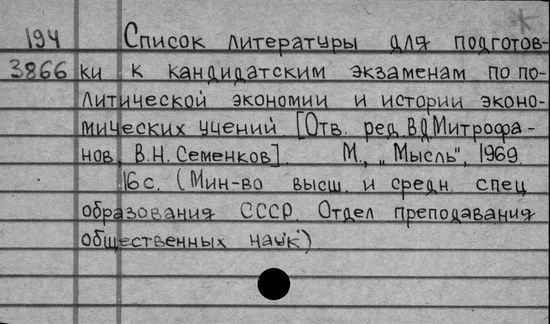 194 Список литературы для подготов-
3866 ки к кандидатским экзаменам по по-
литической экономии и истории эконо-
мических учений. [Отв. ред. В.Д. Митрофа-
нов, В.Н. Семенков]. М., „Мысль", 1969.
16 с. (Мин-во высш. и средн. спец.
образования СССР. Отдел преподавания
общественных наук)